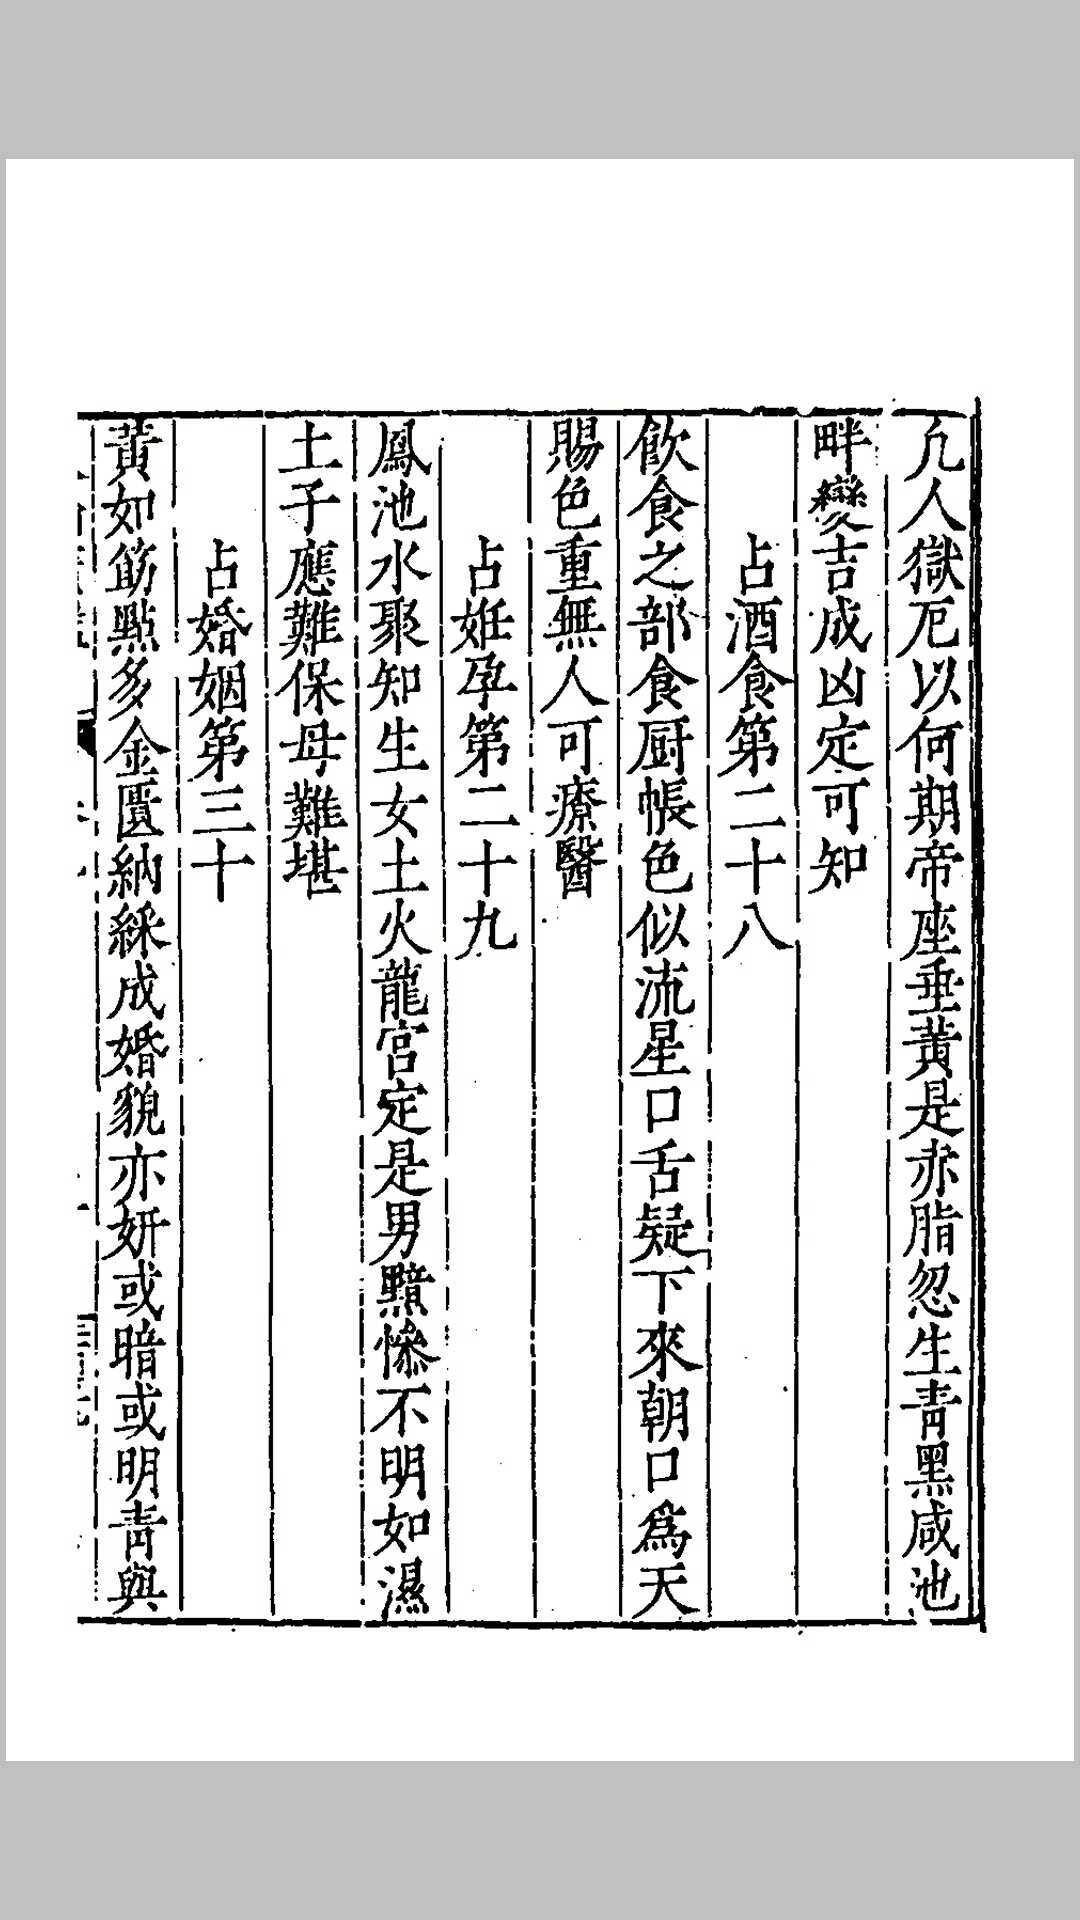 凢人獄厄以何期帝座垂黃是赤脂忽生青黑咸池
畔變吉成凶定可知
占酒食第二十八
飲食之部食厨帳色似流星口舌疑下來朝口爲天
賜色重無人可療醫
占姙孕第二十九
鳳池水聚知生女土火龍宮定是男黯慘不明如濕
土子應難保母難堪
占婚姻第三十
黃如筯點多金匱納綵成婚貌亦妍或暗或明青與